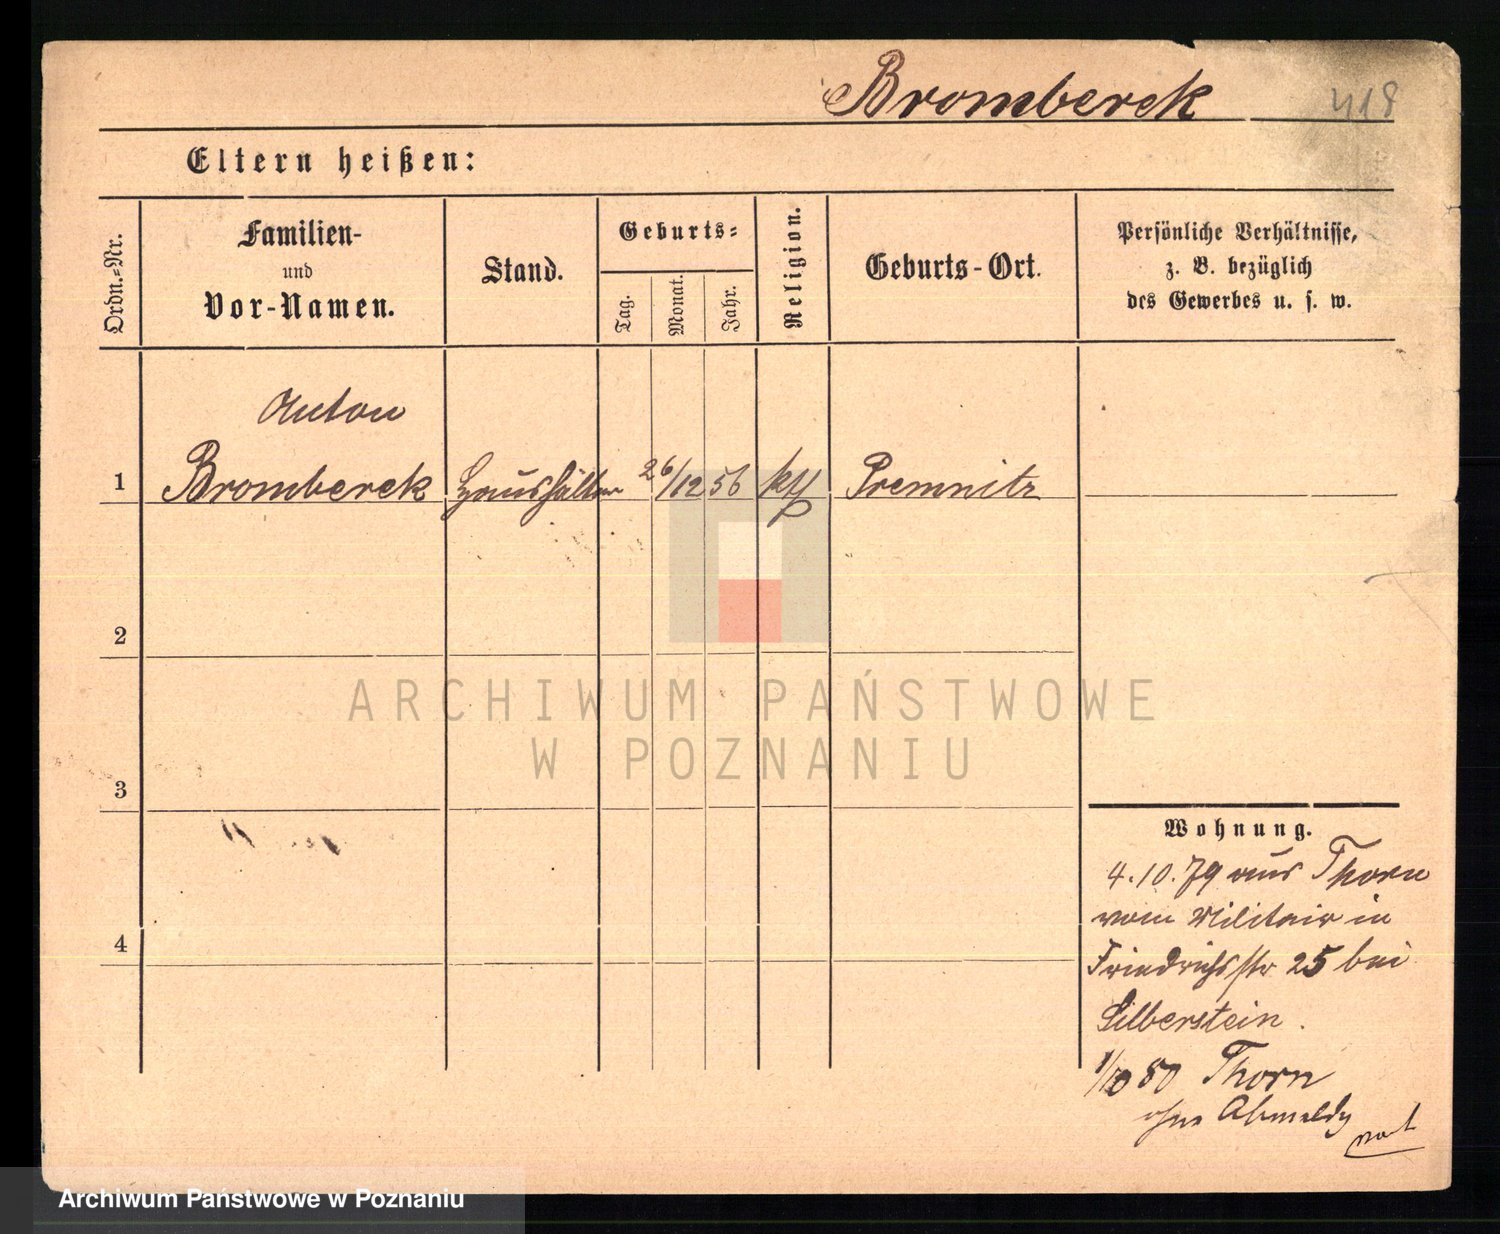 Bromberek 418
Eltern heißen:
Ordn.=Nr.
Familien-
und
Vor-Namen.
Stand.
Geburts=
Tag.
Monat.
Jahr.
Religion.
Geburts-Ort.
Persönliche Verhältnisse,
z. B. bezüglich
des Gewerbes u. s. w.
Anton
1 Bromberek Haushälter 26/12 56 kth Premnitz
2
3
4
Wohnung.
4.10.79 aus Thorn
vom Militair in
Friedrichsstr 25 bei
Silberstein.
1/10 80 Thorn
ohne Abmeldg
ARCHIWUM PAŃSTWOWE
W POZNANIU
Archiwum Państwowe w Poznaniu